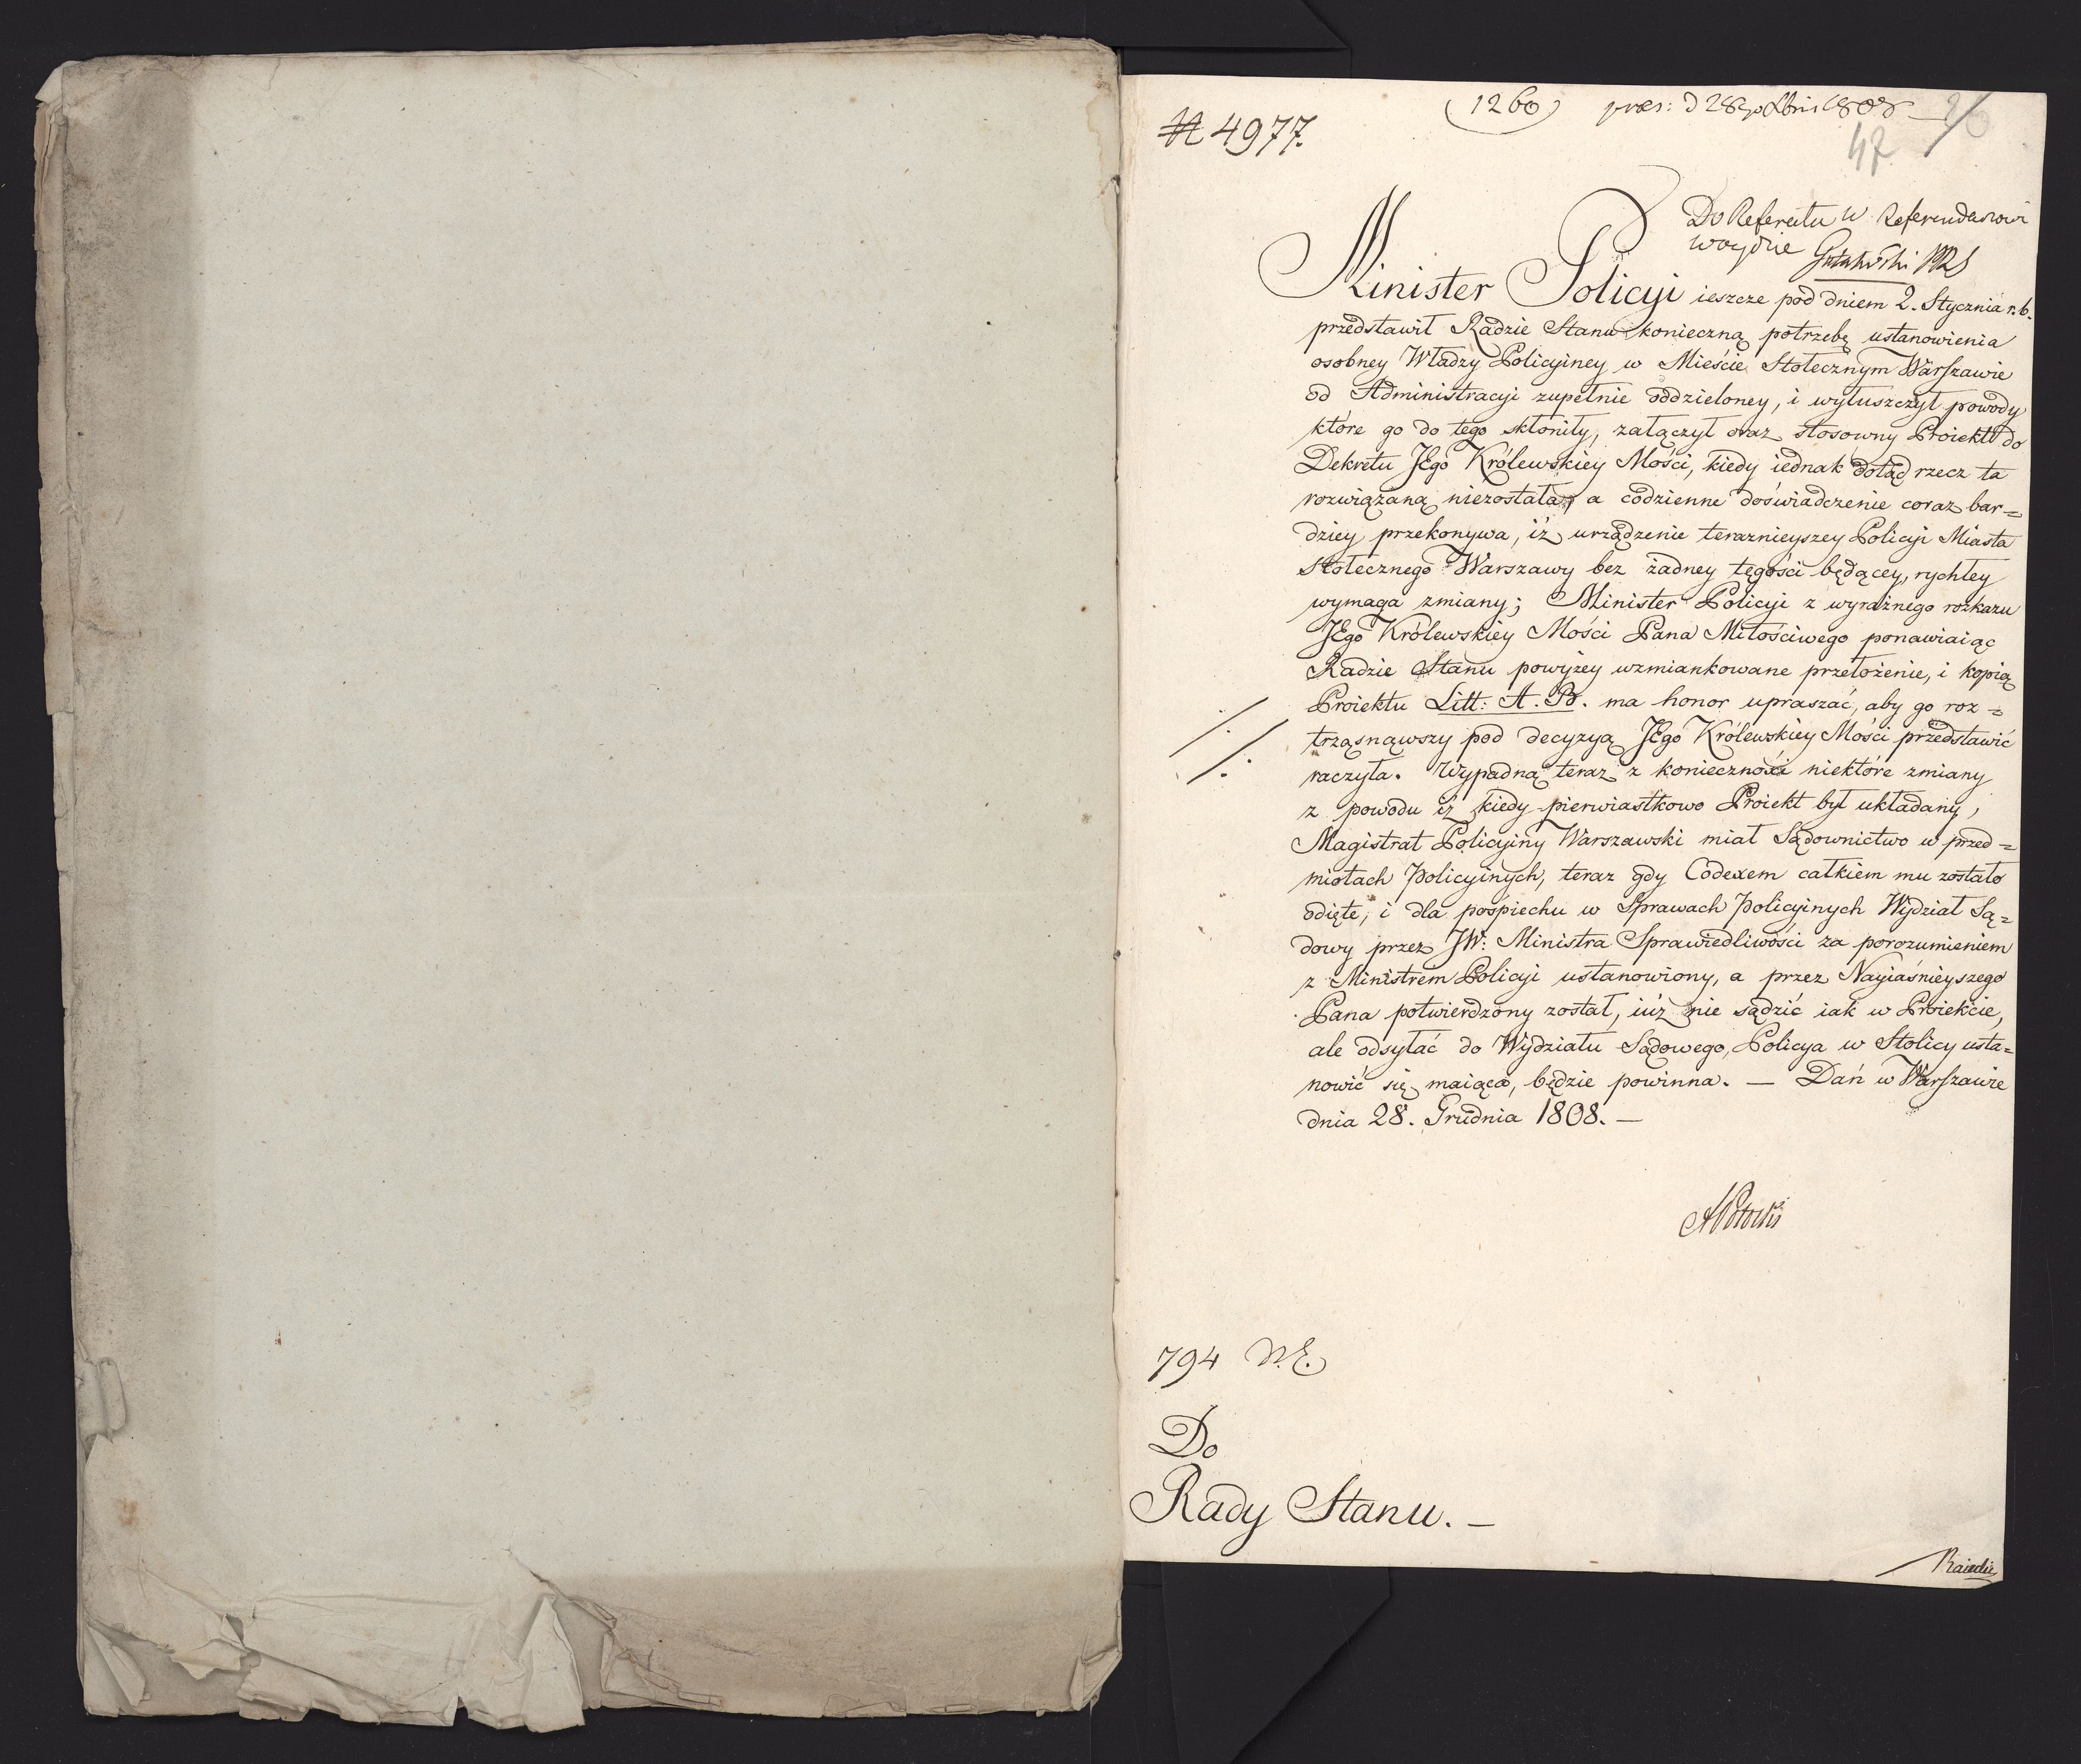 N 4977.
(1260) pres: d 28go Xbris 1808
47
Do Referatu W. Referendarzowi
Woydzie Gutakowski PRS
Minister Policyi ieszcze pod dniem 2. Stycznia r. b.
przedstawił Radzie Stanu konieczną potrzebę ustanowienia
osobney Władzy Policyiney w Mieście Stołecznym Warszawie
od Administracyi zupełnie oddzieloney, i wyłuszczył powody
które go do tego skłoniły, załączył oraz stosowny Proiekt do
Dekretu JEgo Królewskiey Mości, kiedy iednak dotąd rzecz ta
rozwiązaną niezostała, a codzienne doświadczenie coraz bar=
dziey przekonywa, iż urządzenie teraznieyszey Policyi Miasta
Stołecznego Warszawy bez żadney tęgości będącey, rychłey
wymaga zmiany; Minister Policyi z wyraźnego rozkazu
JEgo Królewskiey Mości Pana Miłościwego ponawiaiąc
Radzie Stanu powyżey wzmiankowane przełożenie, i kopią
Proiektu Litt: A. B. ma honor upraszać, aby go roz=
trząsnąwszy pod decyzyą JEgo Królewskiey Mości przedstawić
raczyła. Wypadną teraz z konieczności niektóre zmiany
z powodu iż kiedy pierwiastkowo Proiekt był układany,
Magistrat Policyiny Warszawski miał Sądownictwo w przed=
miotach Policyinych, teraz gdy Codexem całkiem mu zostało
odięte, i dla pośpiechu w Sprawach Policyinych Wydział Są=
dowy przez JW: Ministra Sprawiedliwości za porozumieniem
z Ministrem Policyi ustanowiony, a przez Nayiaśnieyszego
Pana potwierdzony został, iuż nie sądzić iak w Proiekcie,
ale odsyłać do Wydziału Sądowego, Policya w Stolicy usta=
nowić się maiąca, będzie powinna. — Dań w Warszawie
dnia 28. Grudnia 1808. —
APotocki
794 D. E.
Do
Rady Stanu. —